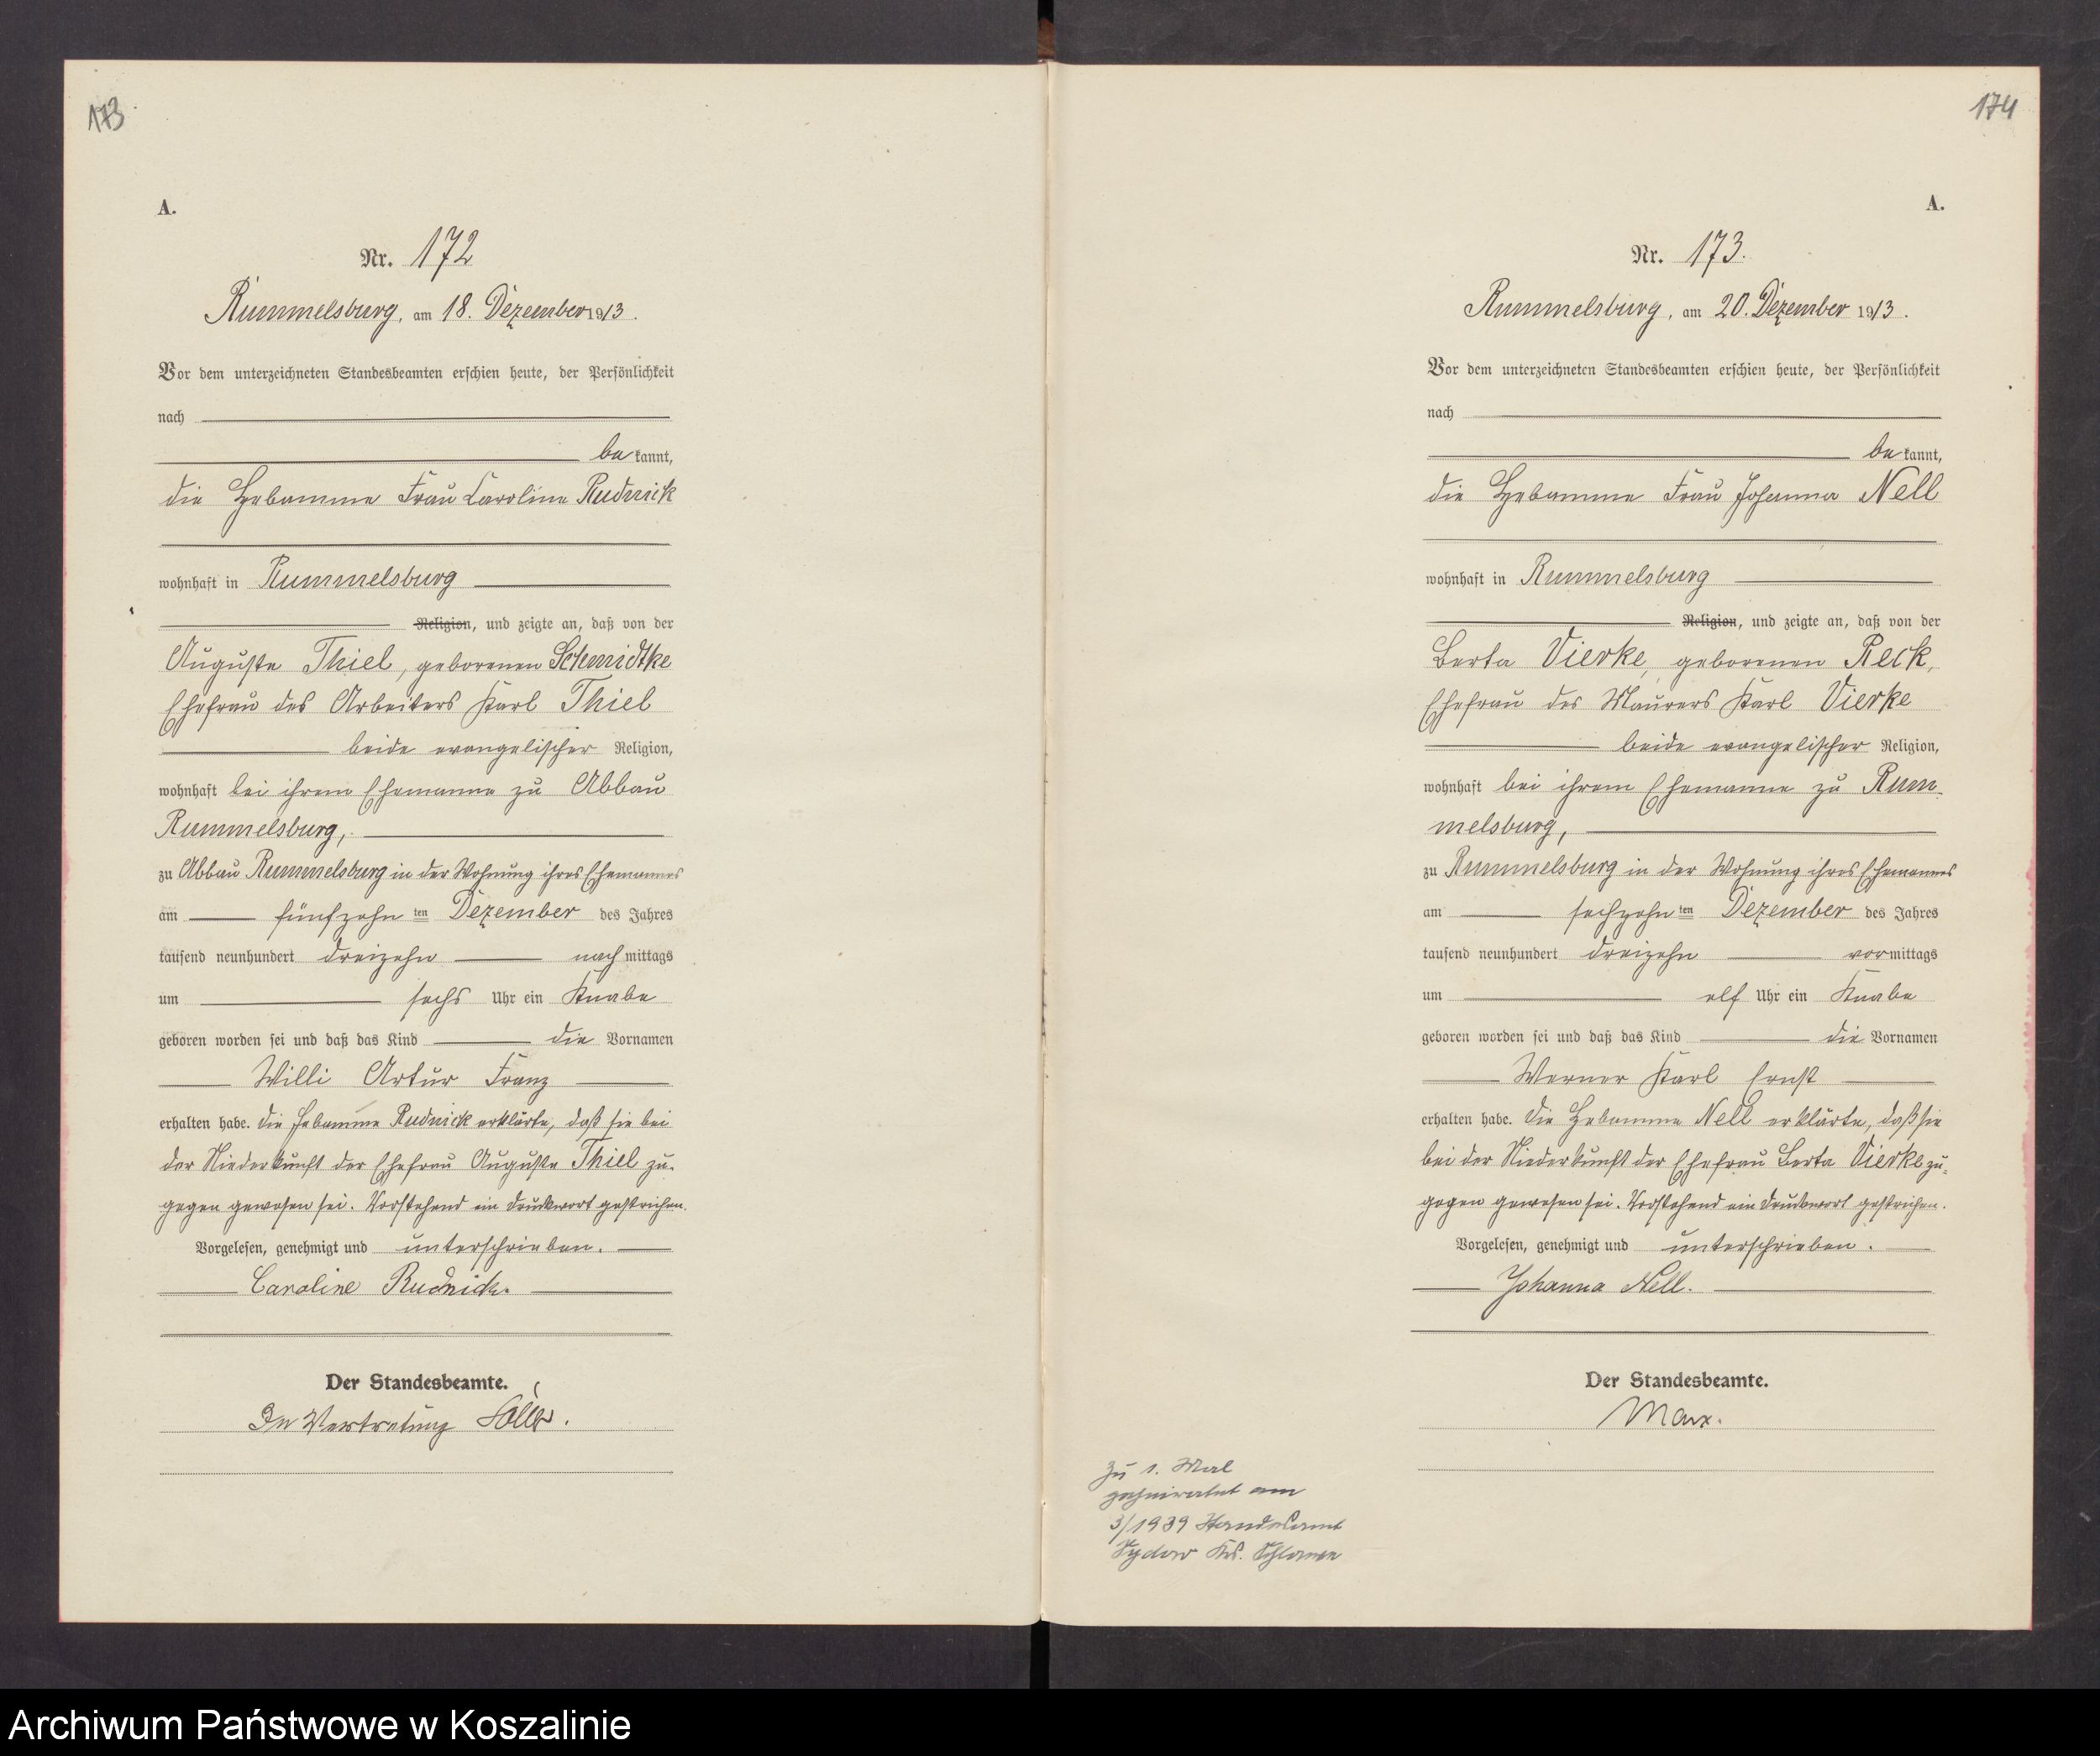 173
A.
Nr. 172
Rummelsburg, am 18. Dezember 1913.
Vor dem unterzeichneten Standesbeamten erschien heute, der Persönlichkeit
nach
be kannt,
die Hebamme Frau Caroline Rudnick
wohnhaft in Rummelsburg
Religion, und zeigte an, daß von der
Auguste Thiel, geborenen Schmidtke
Ehefrau des Arbeiters Karl Thiel
beide evangelischer Religion,
wohnhaft bei ihrem Ehemanne zu Abbau
Rummelsburg,
zu Abbau Rummelsburg in der Wohnung ihres Ehemannes
am fünfzehn ten Dezember des Jahres
tausend neunhundert dreizehn nach mittags
um sechs Uhr ein Knabe
geboren worden sei und daß das Kind die Vornamen
Willi Artur Franz
erhalten habe. Die Hebamme Rudnick erklärte, daß sie bei
der Niederkunft der Ehefrau Auguste Thiel zu-
gegen gewesen sei. Vorstehend ein Druckwort gestrichen.
Vorgelesen, genehmigt und unterschrieben.
Caroline Rudnick.
Der Standesbeamte.
In Vertretung
174
A.
Nr. 173.
Rummelsburg, am 20. Dezember 1913.
Vor dem unterzeichneten Standesbeamten erschien heute, der Persönlichkeit
nach
be kannt,
die Hebamme Frau Johanna Nell
wohnhaft in Rummelsburg
Religion, und zeigte an, daß von der
Berta Vierke, geborenen Reck,
Ehefrau des Maurers Karl Vierke
beide evangelischer Religion,
wohnhaft bei ihrem Ehemanne zu Rum-
melsburg,
zu Rummelsburg in der Wohnung ihres Ehemannes
am sechzehn ten Dezember des Jahres
tausend neunhundert dreizehn vormittags
um elf Uhr ein Knabe
geboren worden sei und daß das Kind die Vornamen
Werner Karl Ernst
erhalten habe. Die Hebamme Nell erklärte, daß sie
bei der Niederkunft der Ehefrau Berta Vierke zu-
gegen gewesen sei. Vorstehend ein Druckwort gestrichen.
Vorgelesen, genehmigt und unterschrieben.
Johanna Nell.
Der Standesbeamte.
Marx.
Zu 1. Mal
geheiratet am
3/1939 Standesamt
Sydow Krs. Schlawe
Archiwum Państwowe w Koszalinie